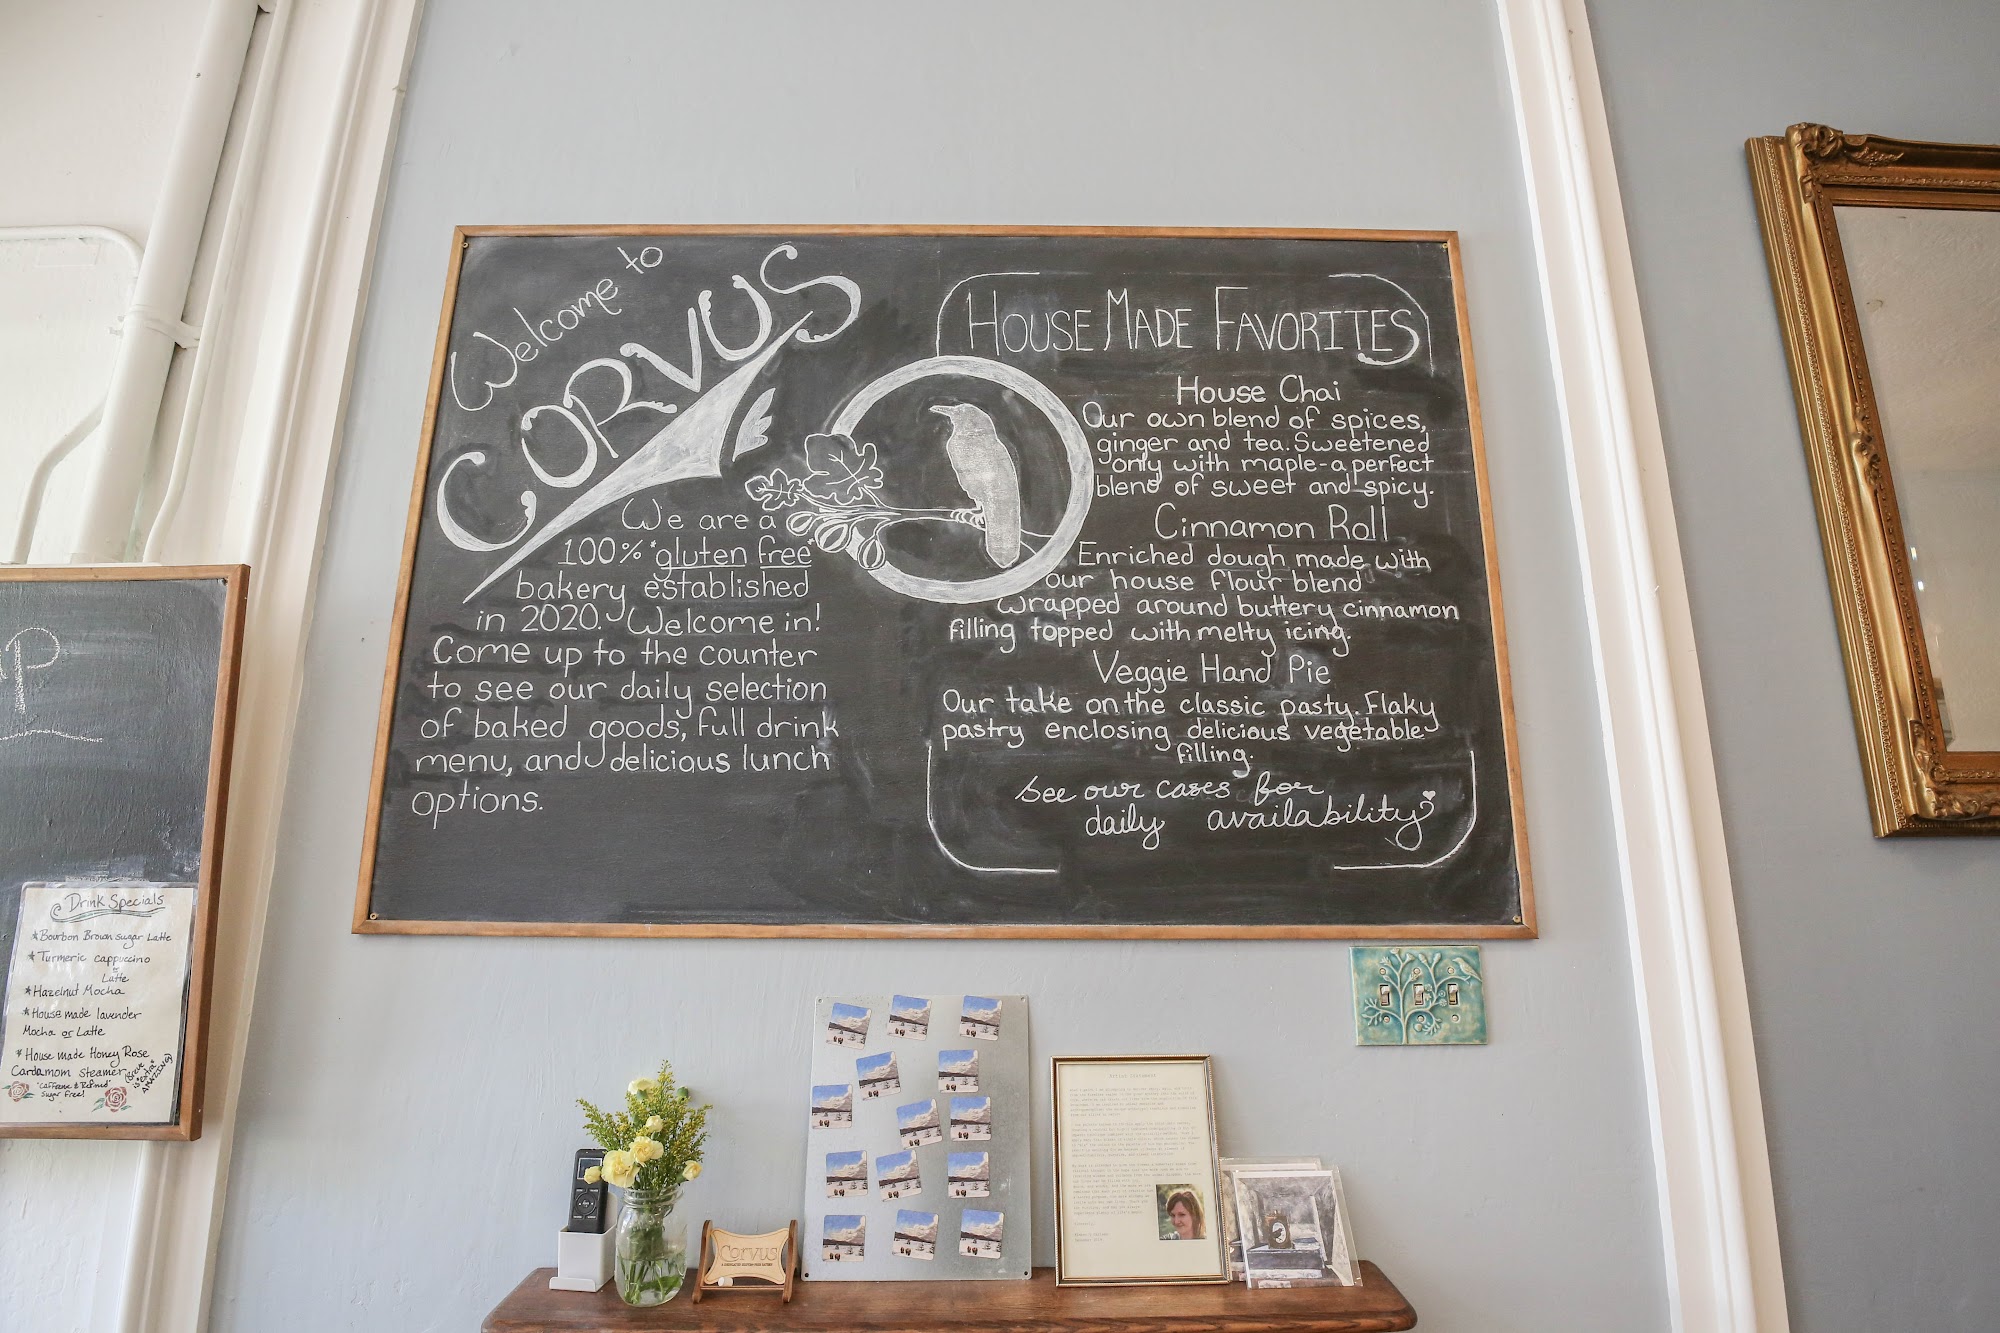 Welcome to
CORVUS
We are a
100% "gluten free"
bakery established
in 2020. Welcome in!
Come up to the counter
to see our daily selection
of baked goods, full drink
menu, and delicious lunch
options.
HOUSE MADE FAVORITES
House Chai
Our own blend of spices,
ginger and tea. Sweetened
only with maple - a perfect
blend of sweet and spicy.
Cinnamon Roll
Enriched dough made with
our house flour blend
wrapped around buttery cinnamon
filling topped with melty icing.
Veggie Hand Pie
Our take on the classic pasty. Flaky
pastry enclosing delicious vegetable
filling.
see our cases for
daily availability
P
Drink Specials
*Bourbon Brown sugar Latte
*Turmeric cappuccino
or
Latte
*Hazelnut Mocha
*House made lavender
Mocha or Latte
*House made Honey Rose
Cardamom steamer
"Caffeine & Refined"
Sugar Free!
AMAZING)
Corvus
Artist Statement